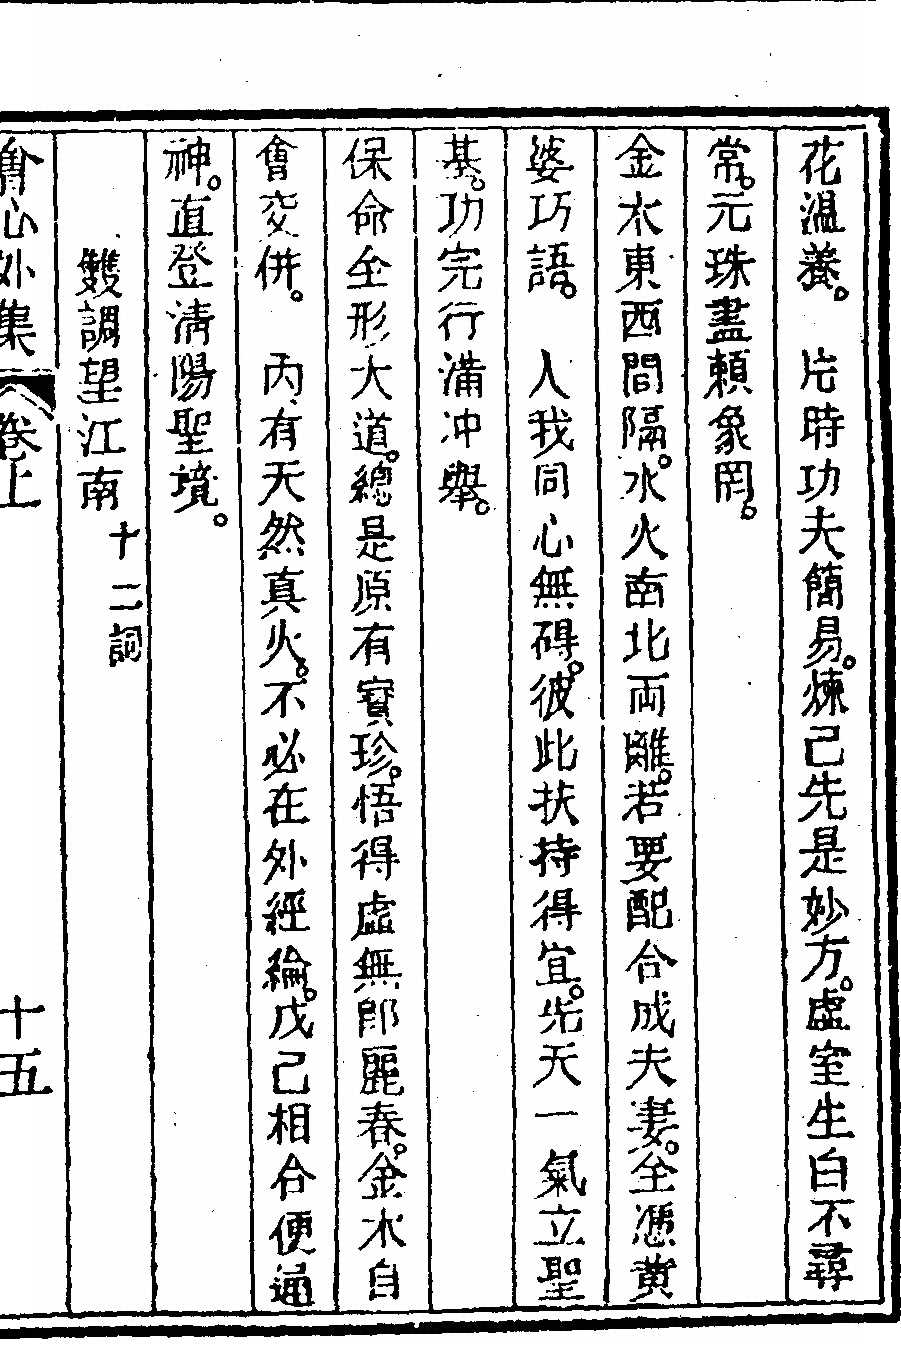 花溫養。　片時功夫簡易。煉己先是妙方。虛室生白不尋
常。元珠盡賴象罔。
金木東西間隔。水火南北兩離。若要配合成夫妻。全憑黄
婆巧語。　人我同心無碍。彼此扶持得宜。先天一氣立聖
基。功完行滿冲舉。
保命全形大道。總是原有寶珍。悟得虛無即麗春。金木自
會交併。　内有天然真火。不必在外經綸。戊己相合便通
神。直登清陽聖境。
雙調望江南　十二詞
會心外集　卷上　十五